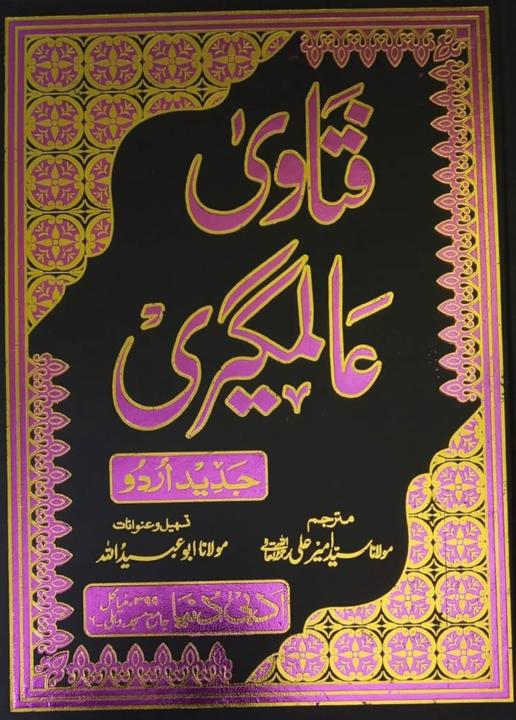 فتاویٰ
عالمگیری
۷
جدید اردو
مترجم
مولانا سید امیر علی رحمۃ اللہ تعالیٰ
تسہیل و عنوانات
مولانا ابو عبید اللہ
ادبی دنیا
مٹیا محل
جامع مسجد دہلی